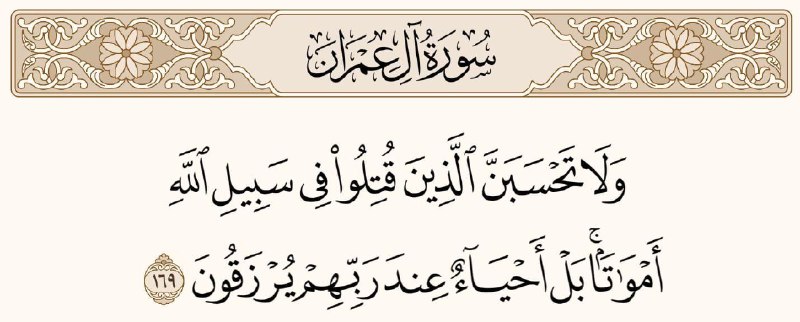 سُورَةُ آلِ عِمۡرَانَ
وَلَا تَحۡسَبَنَّ ٱلَّذِينَ قُتِلُواْ فِي سَبِيلِ ٱللَّهِ
أَمۡوَٰتَۢاۚ بَلۡ أَحۡيَآءٌ عِندَ رَبِّهِمۡ يُرۡزَقُونَ ١٦٩